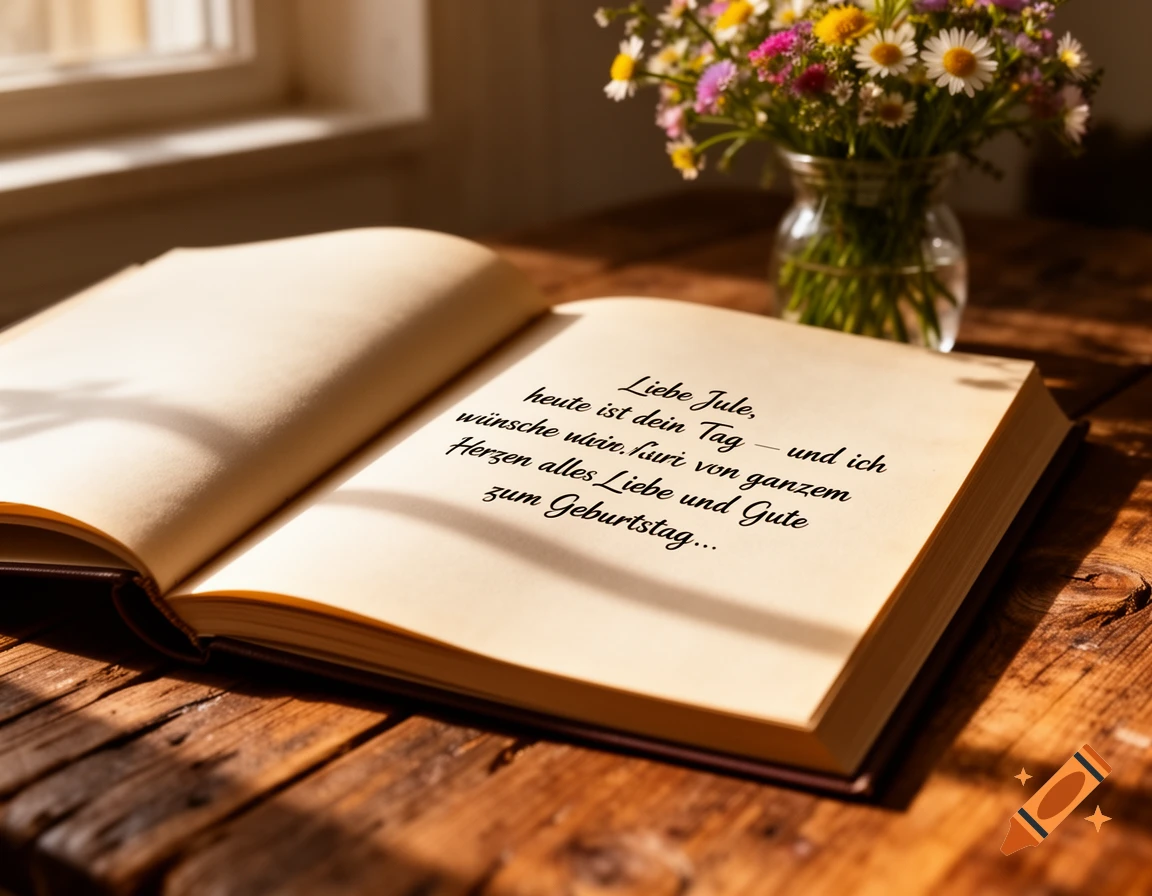 Liebe Jule,
heute ist dein Tag — und ich
wünsche von ganzem
Herzen alles Liebe und Gute
zum Geburtstag...